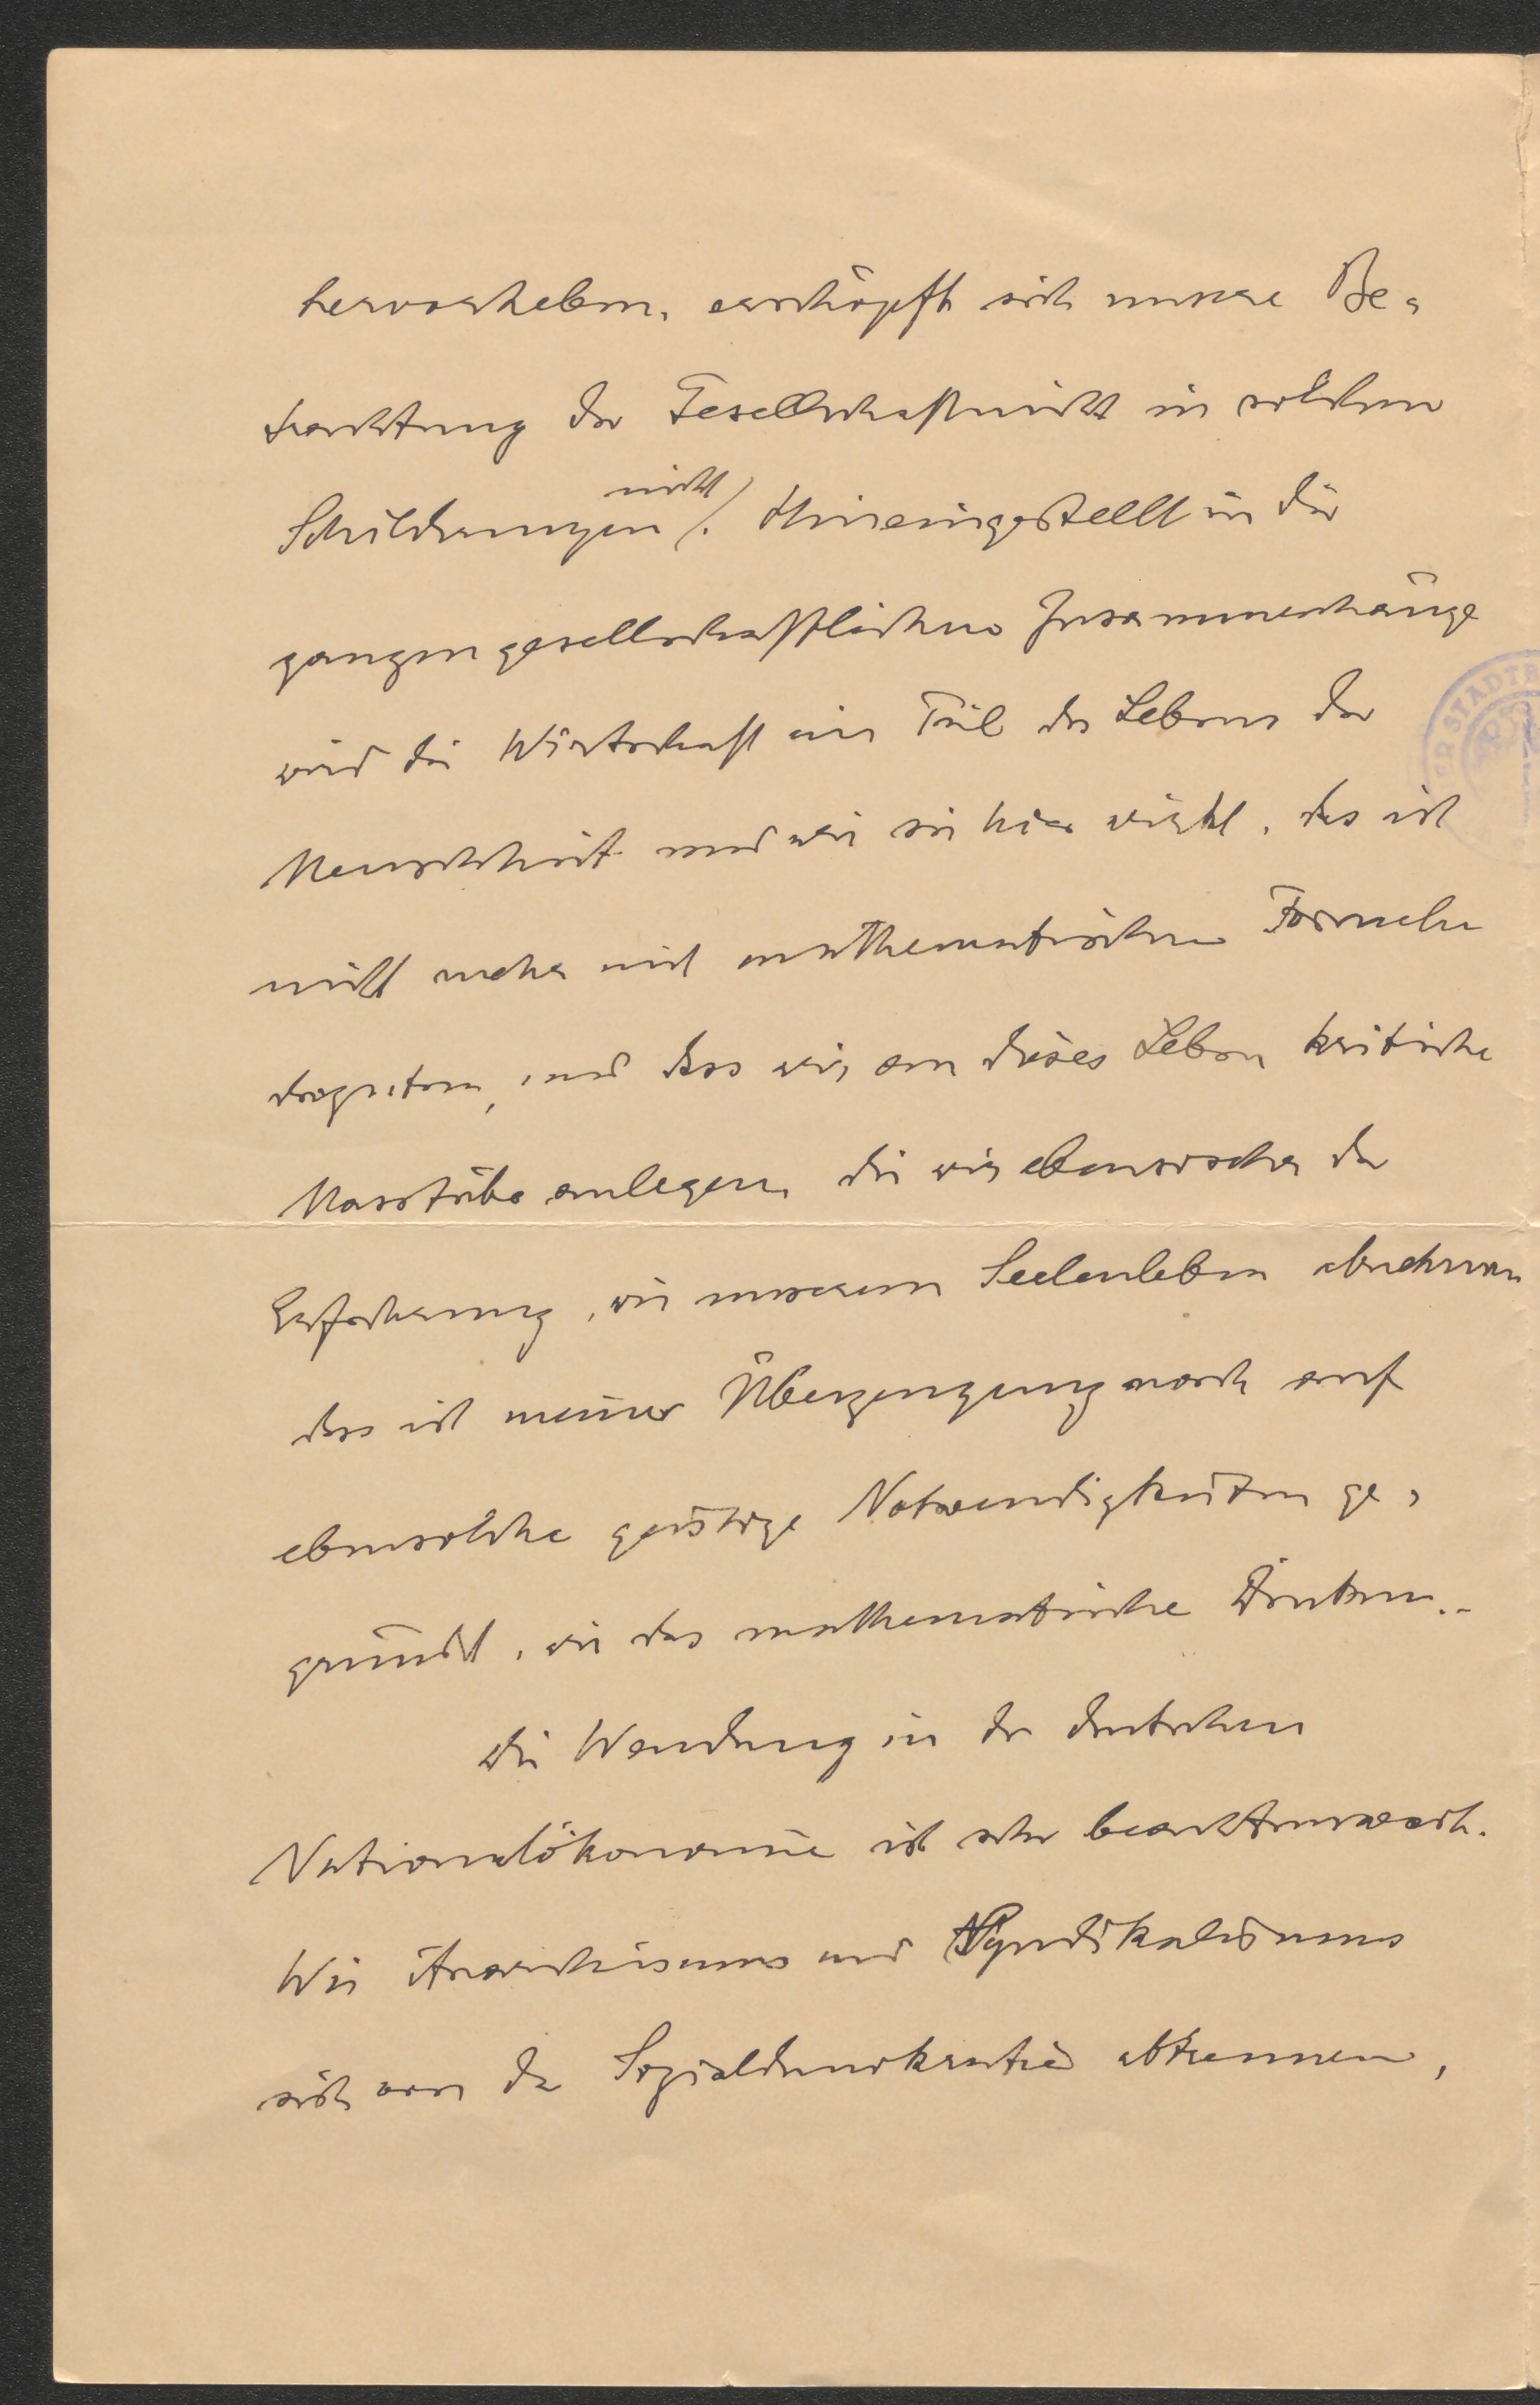 hervorheben, erschöpft sich unsere Be-
trachtung der Gesellschaft nicht in solchen
Schilderungen nicht. Hineingestellt in die
ganzen gesellschaftlichen Zusammenhänge
wird die Wirtschaft ein Teil des Lebens der
Menschheit und wie sie hier wirkt, das ist
nicht mehr mit mathematischen Formeln
, und dass wir an dieses Leben kritische
Masstäbe anlegen, die wir ebenso der
Erfahrung, wie unserem Seelenleben abnehmen
das ist meiner Überzeugung nach auf
ebensolche geistige Notwendigkeiten ge-
gründet, wie das mathematische Denken.-
Die Wendung in der deutschen
Nationalökonomie ist sehr beachtenswert.
Wie Anarchismus und Syndikalismus
sich von der Sozialdemokratie abtrennen,
STADTB